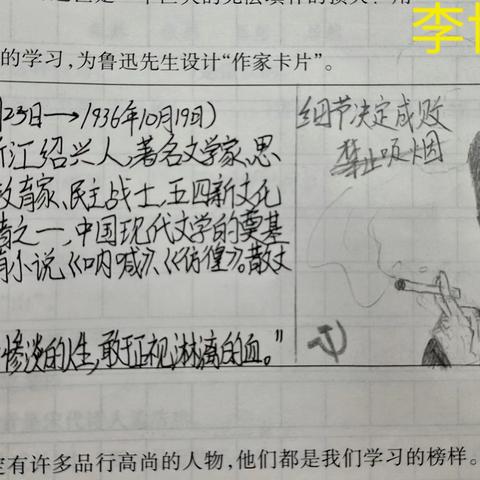 李
的学习，为鲁迅先生设计“作家卡片”。
月23日→1936年10月19日）
浙江绍兴人，著名文学家、思
教育家、民主战士，五四新文化
者之一，中国现代文学的奠基
有小说《呐喊》、《彷徨》。散文
惨淡的人生，敢于正视淋漓的血。”
细节决定成败
禁止吸烟
有许多品行高尚的人物，他们都是我们学习的榜样。